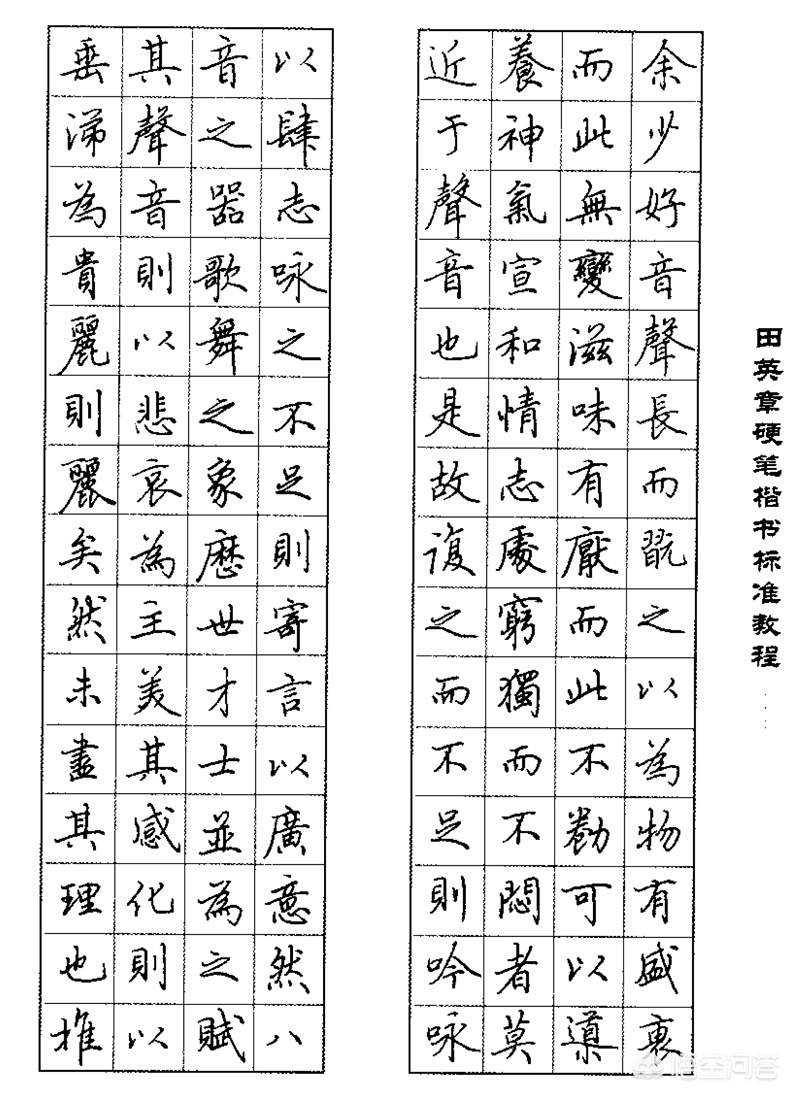 田英章硬笔楷书标准教程
余少好音聲長而翫之以為物有盛衰
而此無變滋味有厭而此不勌可以導
養神氣宣和情志處窮獨而不悶者莫
近于聲音也是故復之而不足則吟咏
以肆志咏之不足則寄言以廣意然八
音之器歌舞之象歷世才士並為之賦
其聲音則以悲哀為主美其感化則以
垂涕為貴麗則麗矣然未盡其理也推
悟空问答